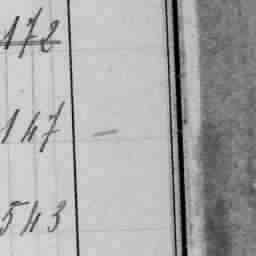 172
147 —
543